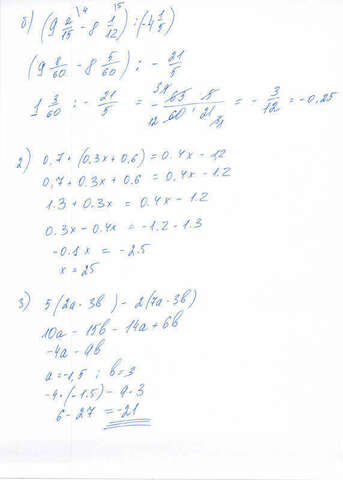 б) (9 2/15 - 8 1/12) : (-4 1/5)
(9 8/60 - 8 5/60) : - 21/5
1 3/60 : - 21/5 = - 63 · 5 / 60 · 21 = - 3/12 = -0,25
2) 0,7 + (0,3x + 0,6) = 0.4x - 1,2
0,7 + 0.3x + 0.6 = 0,4x - 1.2
1.3 + 0.3x = 0.4x - 1.2
0.3x - 0.4x = -1.2 - 1.3
-0.1x = -2.5
x = 25
3) 5(2a - 3b) - 2(7a - 3b)
10a - 15b - 14a + 6b
-4a - 9b
a = -1,5 ; b = 3
-4 · (-1.5) - 9 · 3
6 - 27 = -21